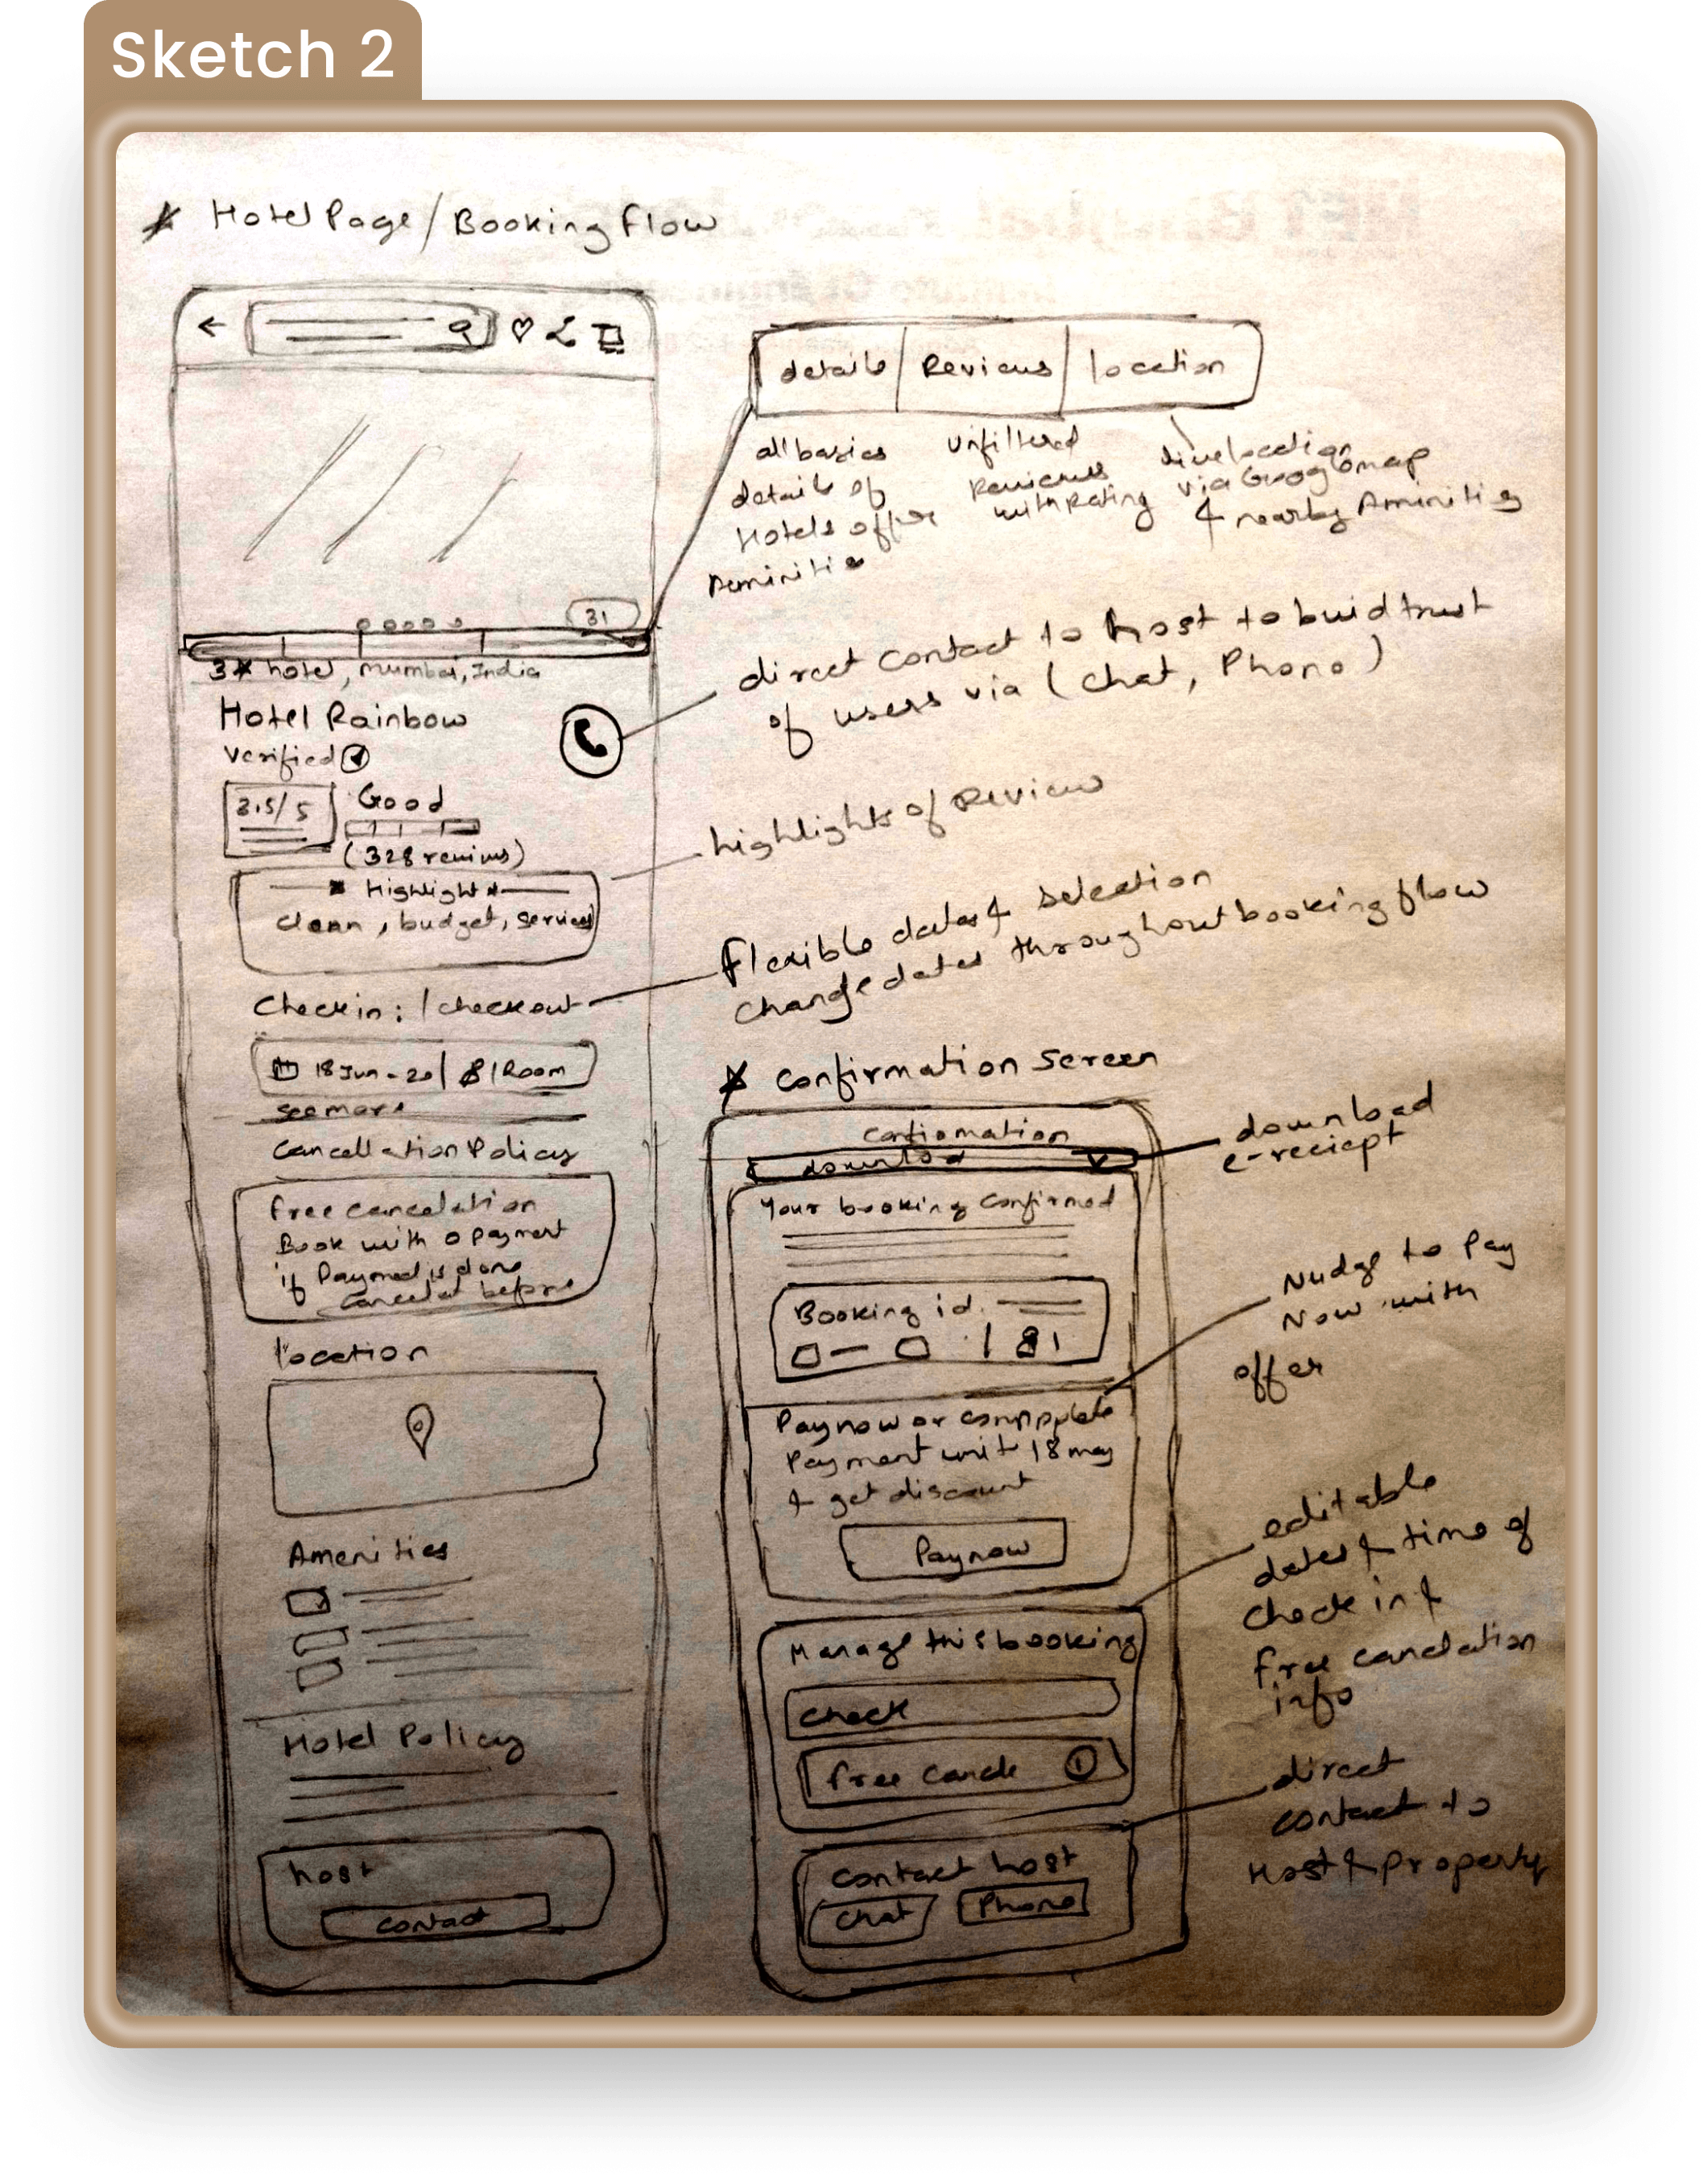 Sketch 2
Hotel Page / Booking flow
31
3★ hotel, mumbai, India
Hotel Rainbow
verified
3.5/5
Good
(328 reviws)
Highlight
clean, budget, services
Checkin: / checkout
18 Jun - 20 | 8 | Room
see more
Cancellation Policy
free cancelation
Book with 0 payment
if Payment is done
cancel before
location
Amenities
Hotel Policy
host
contact
details
Reviews
location
all basics
details of
Hotels offer
Aminitie
unfiltered
Reviews
with Rating
live location
via Googlemap
& nearby Aminities
direct contact to host to buid trust
of users via (chat, Phone)
highlights of Review
flexible dates & selection
change dates throughout booking flow
Confirmation Screen
Confiomation
download
Your booking Confirmed
Booking id.
1
Pay now or compplete
Payment unit 18 may
& get discount
Paynow
Manage this booking
check
free cancle
contact host
Chat
Phone
download
e-reciept
Nudge to Pay
Now with
offer
editable
dates & time of
check in &
free cancelation
info
direct
contact to
Host & property